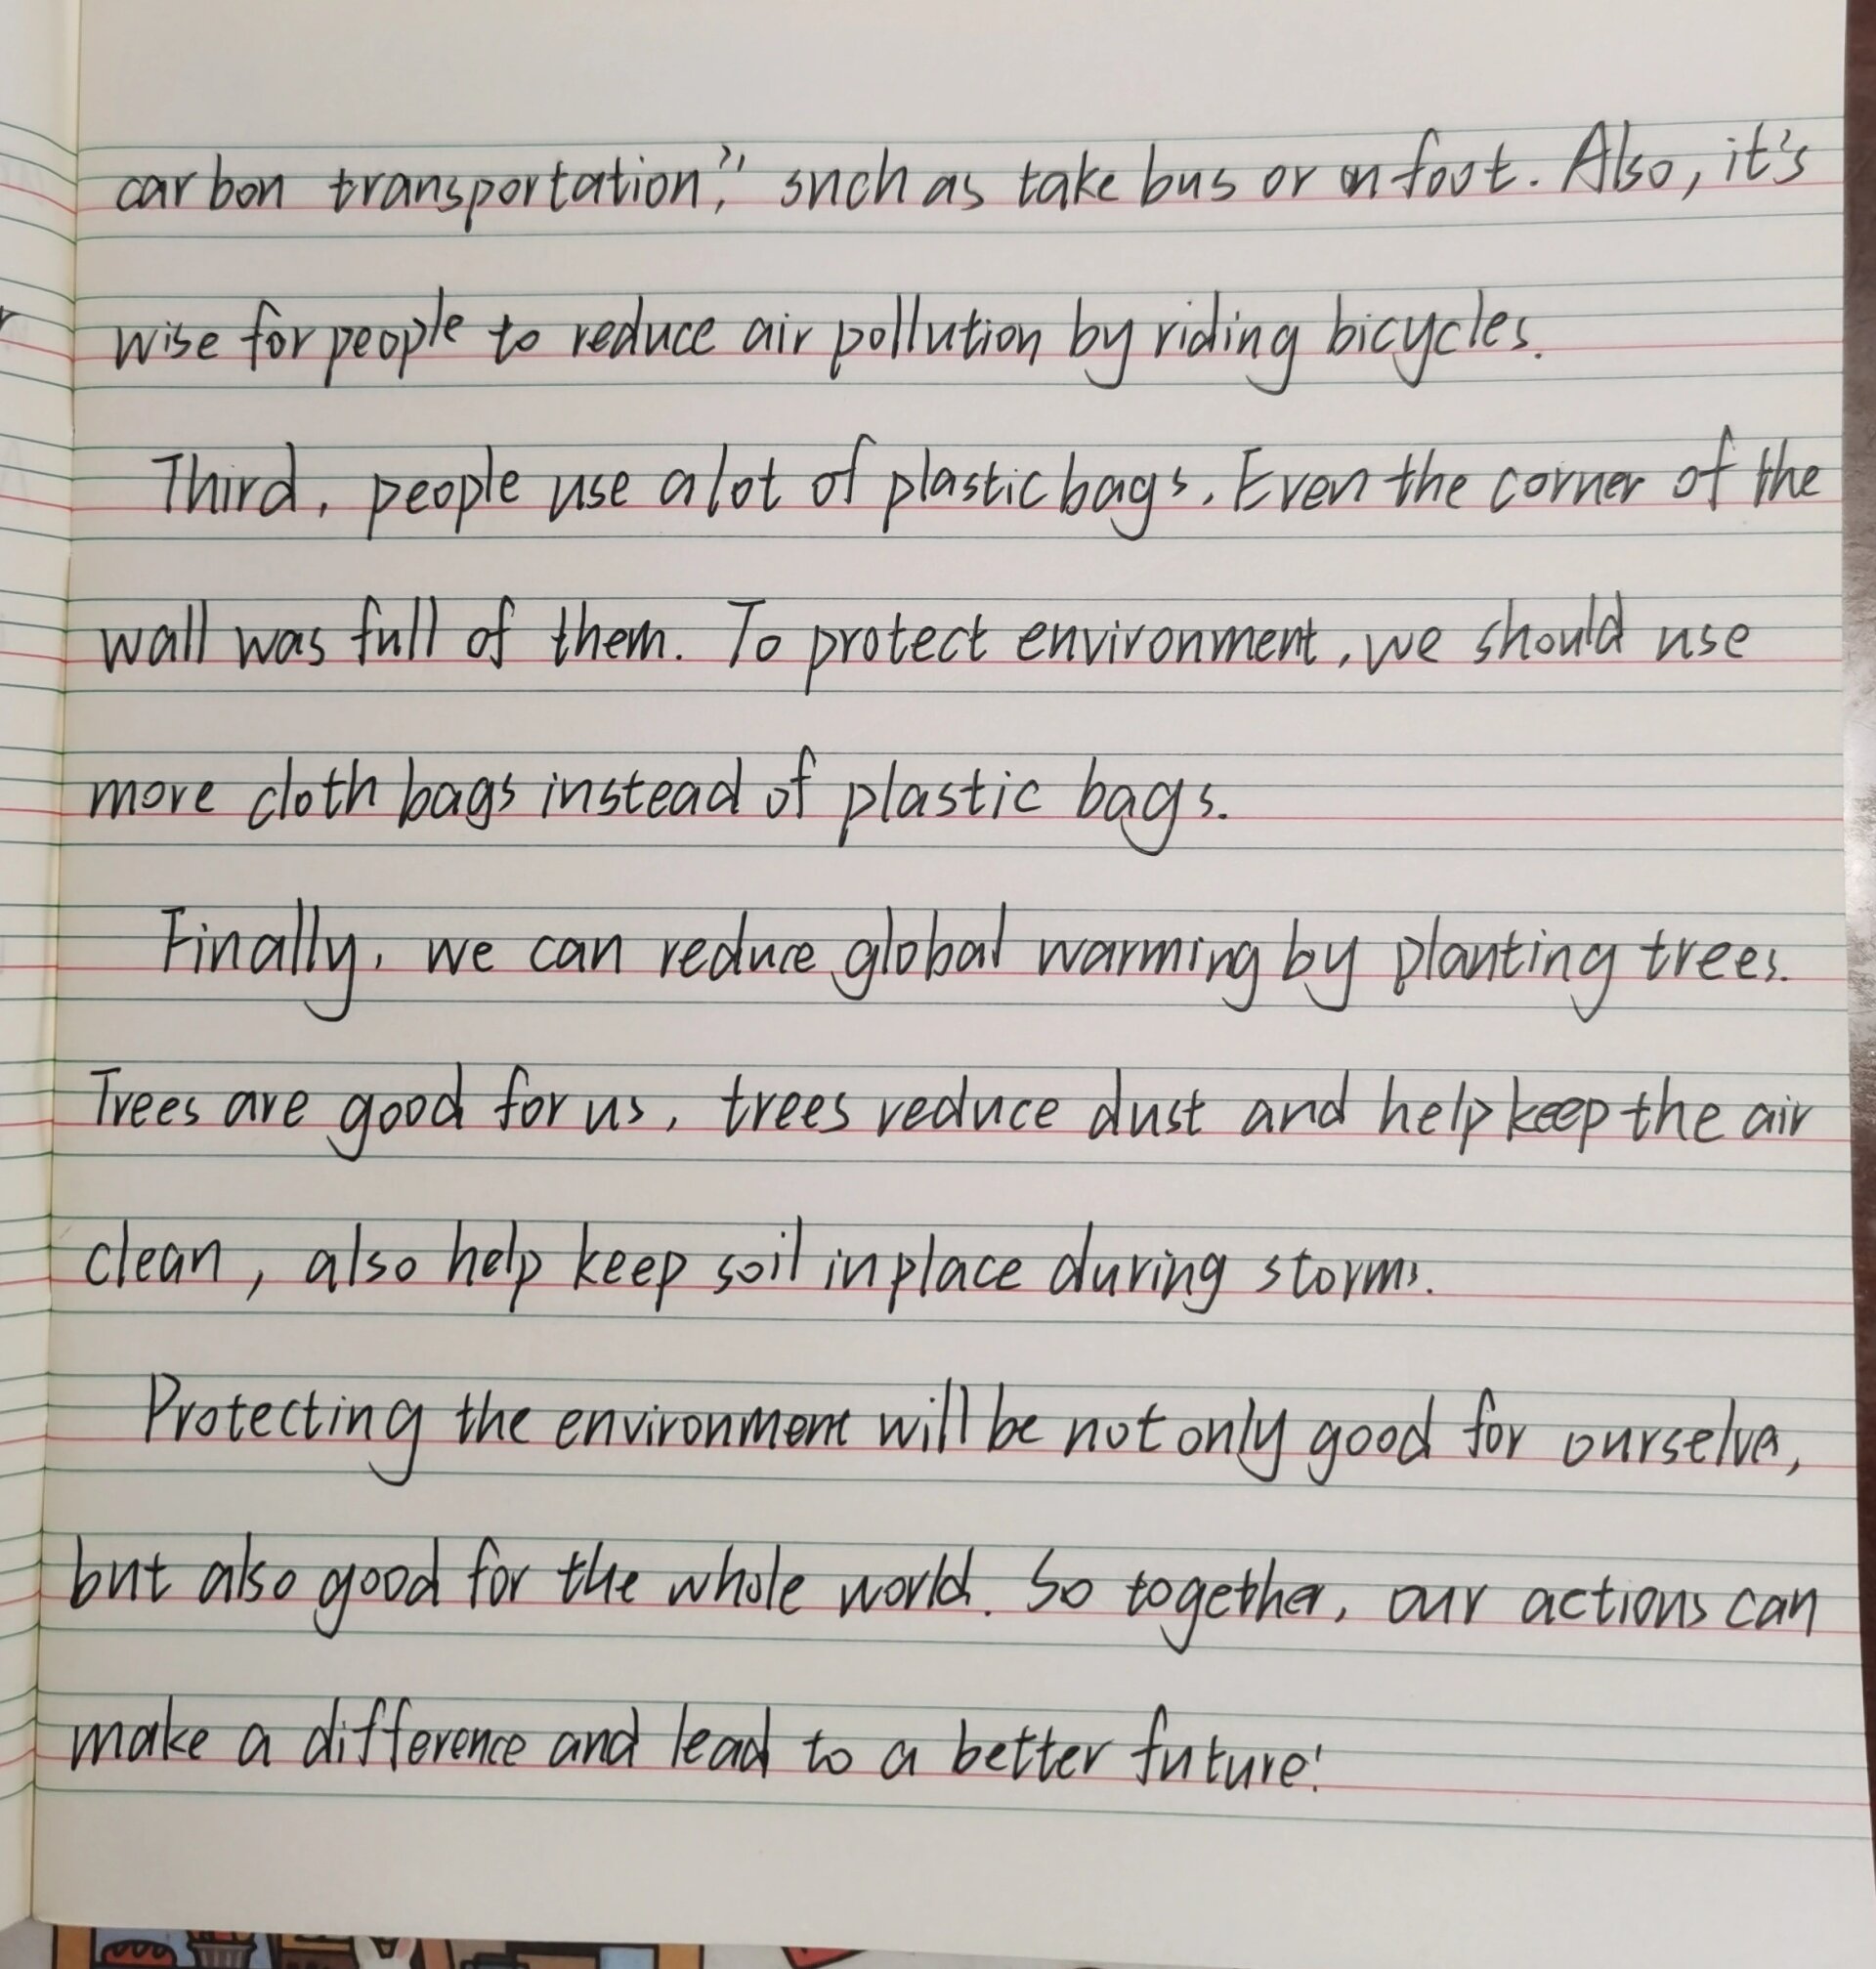 carbon transportation," such as take bus or on foot. Also, it's
wise for people to reduce air pollution by riding bicycles.
Third, people use a lot of plastic bags. Even the corner of the
wall was full of them. To protect environment, we should use
more cloth bags instead of plastic bags.
Finally, we can reduce global warming by planting trees.
Trees are good for us, trees reduce dust and help keep the air
clean, also help keep soil in place during storms.
Protecting the environment will be not only good for ourselves,
but also good for the whole world. So together, our actions can
make a difference and lead to a better future!